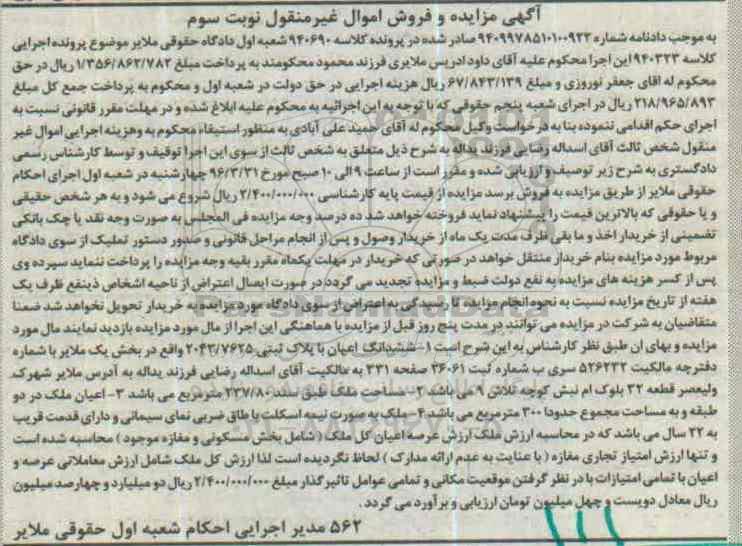 آگهی مزایده و فروش اموال غیرمنقول نوبت سوم
به موجب دادنامه شماره ۹۴۰۹۹۷۸۵۱۰۱۰۰۹۲۲ صادر شده در پرونده کلاسه ۹۴۰۶۹۰ شعبه اول دادگاه حقوقی ملایر موضوع پرونده اجرایی
کلاسه ۹۴۰۳۲۳ این اجرا محکوم علیه آقای داود ادریس ملایری فرزند محمود محکومند به پرداخت مبلغ ۱/۳۵۶/۸۶۲/۷۸۲ ریال در حق
محکوم له اقای جعفر نوروزی و مبلغ ۶۷/۸۴۳/۱۳۹ ریال هزینه اجرایی در حق دولت در شعبه اول و محکوم به پرداخت جمع کل مبلغ
۲۱۸/۹۶۵/۸۹۳ ریال در اجرای شعبه پنجم حقوقی که با توجه به این اجرائیه به محکوم علیه ابلاغ شده و در مهلت مقرر قانونی نسبت به
اجرای حکم اقدامی ننموده بنا به درخواست وکیل محکوم له آقای حمید علی آبادی به منظور استیفاء محکوم به وهزینه اجرایی اموال غیر
منقول شخص ثالث آقای اسداله رضایی فرزند یداله به شرح ذیل متعلق به شخص ثالث از سوی این اجرا توقیف و توسط کارشناس رسمی
دادگستری به شرح زیر توصیف و ارزیابی شده و مقرر است از ساعت ۹ الی ۱۰ صبح مورخ ۹۶/۳/۳۱ چهارشنبه در شعبه اول اجرای احکام
حقوقی ملایر از طریق مزایده به فروش برسد مزایده از قیمت پایه کارشناسی ۲/۴۰۰/۰۰۰/۰۰۰ ریال شروع می شود و به هر شخص حقیقی
و یا حقوقی که بالاترین قیمت را پیشنهاد نماید فروخته خواهد شد ده درصد وجه مزایده فی المجلس به صورت وجه نقد یا چک بانکی
تضمینی از خریدار اخذ و ما بقی ظرف مدت یک ماه از خریدار وصول و پس از انجام مراحل قانونی و صدور دستور تملیک از سوی دادگاه
مربوط مورد مزایده بنام خریدار منتقل خواهد در صورتی که خریدار در مهلت یکماه مقرر بقیه وجه مزایده را پرداخت ننماید سپرده وی
پس از کسر هزینه های مزایده به نفع دولت ضبط و مزایده تجدید می گردد در صورت ایصال اعتراض از ناحیه اشخاص ذینفع ظرف یک
هفته از تاریخ مزایده نسبت به نحوه انجام مزایده تا رسیدگی به اعتراض از سوی دادگاه مورد مزایده به خریدار تحویل نخواهد شد ضمنا
متقاضیان به شرکت در مزایده می توانند در مدت پنج روز قبل از مزایده با هماهنگی این اجرا از مال مورد مزایده بازدید نمایند مال مورد
مزایده و بهای ان طبق نظر کارشناس به این شرح است ۱- ششدانگ اعیان با پلاک ثبتی ۲۰۴۳/۷۶۲۵ واقع در بخش یک ملایر با شماره
دفترچه مالکیت ۵۲۶۲۳۲ سری ب شماره ثبت ۳۶۰۶۱ صفحه ۳۳۱ به مالکیت آقای اسداله رضایی فرزند یداله به آدرس ملایر شهرک
ولیعصر قطعه ۳۲ بلوک ام نبش کوچه تلاش ۹ می باشد ۲- مساحت ملک طبق سند ۲۳۷/۸۰ مترمربع می باشد ۳- اعیان ملک در دو
طبقه و به مساحت مجموع حدودا ۳۰۰ مترمربع می باشد ۴- ملک به صورت نیمه اسکلت با طاق ضربی نمای سیمانی و دارای قدمت قریب
به ۲۲ سال می باشد که در محاسبه ارزش ملک ارزش عرصه اعیان کل ملک ( شامل بخش مسکونی و مغازه موجود ) محاسبه شده است
و تنها ارزش امتیاز تجاری مغازه ( با عنایت به عدم ارائه مدارک ) لحاظ نگردیده است لذا ارزش کل ملک شامل ارزش معاملاتی عرصه و
اعیان با تمامی امتیازات با در نظر گرفتن موقعیت مکانی و تمامی عوامل تاثیر گذار مبلغ ۲/۴۰۰/۰۰۰/۰۰۰ ریال دو میلیارد و چهارصد میلیون
ریال معادل دویست و چهل میلیون تومان ارزیابی و برآورد می گردد .
۵۶۲ مدیر اجرایی احکام شعبه اول حقوقی ملایر